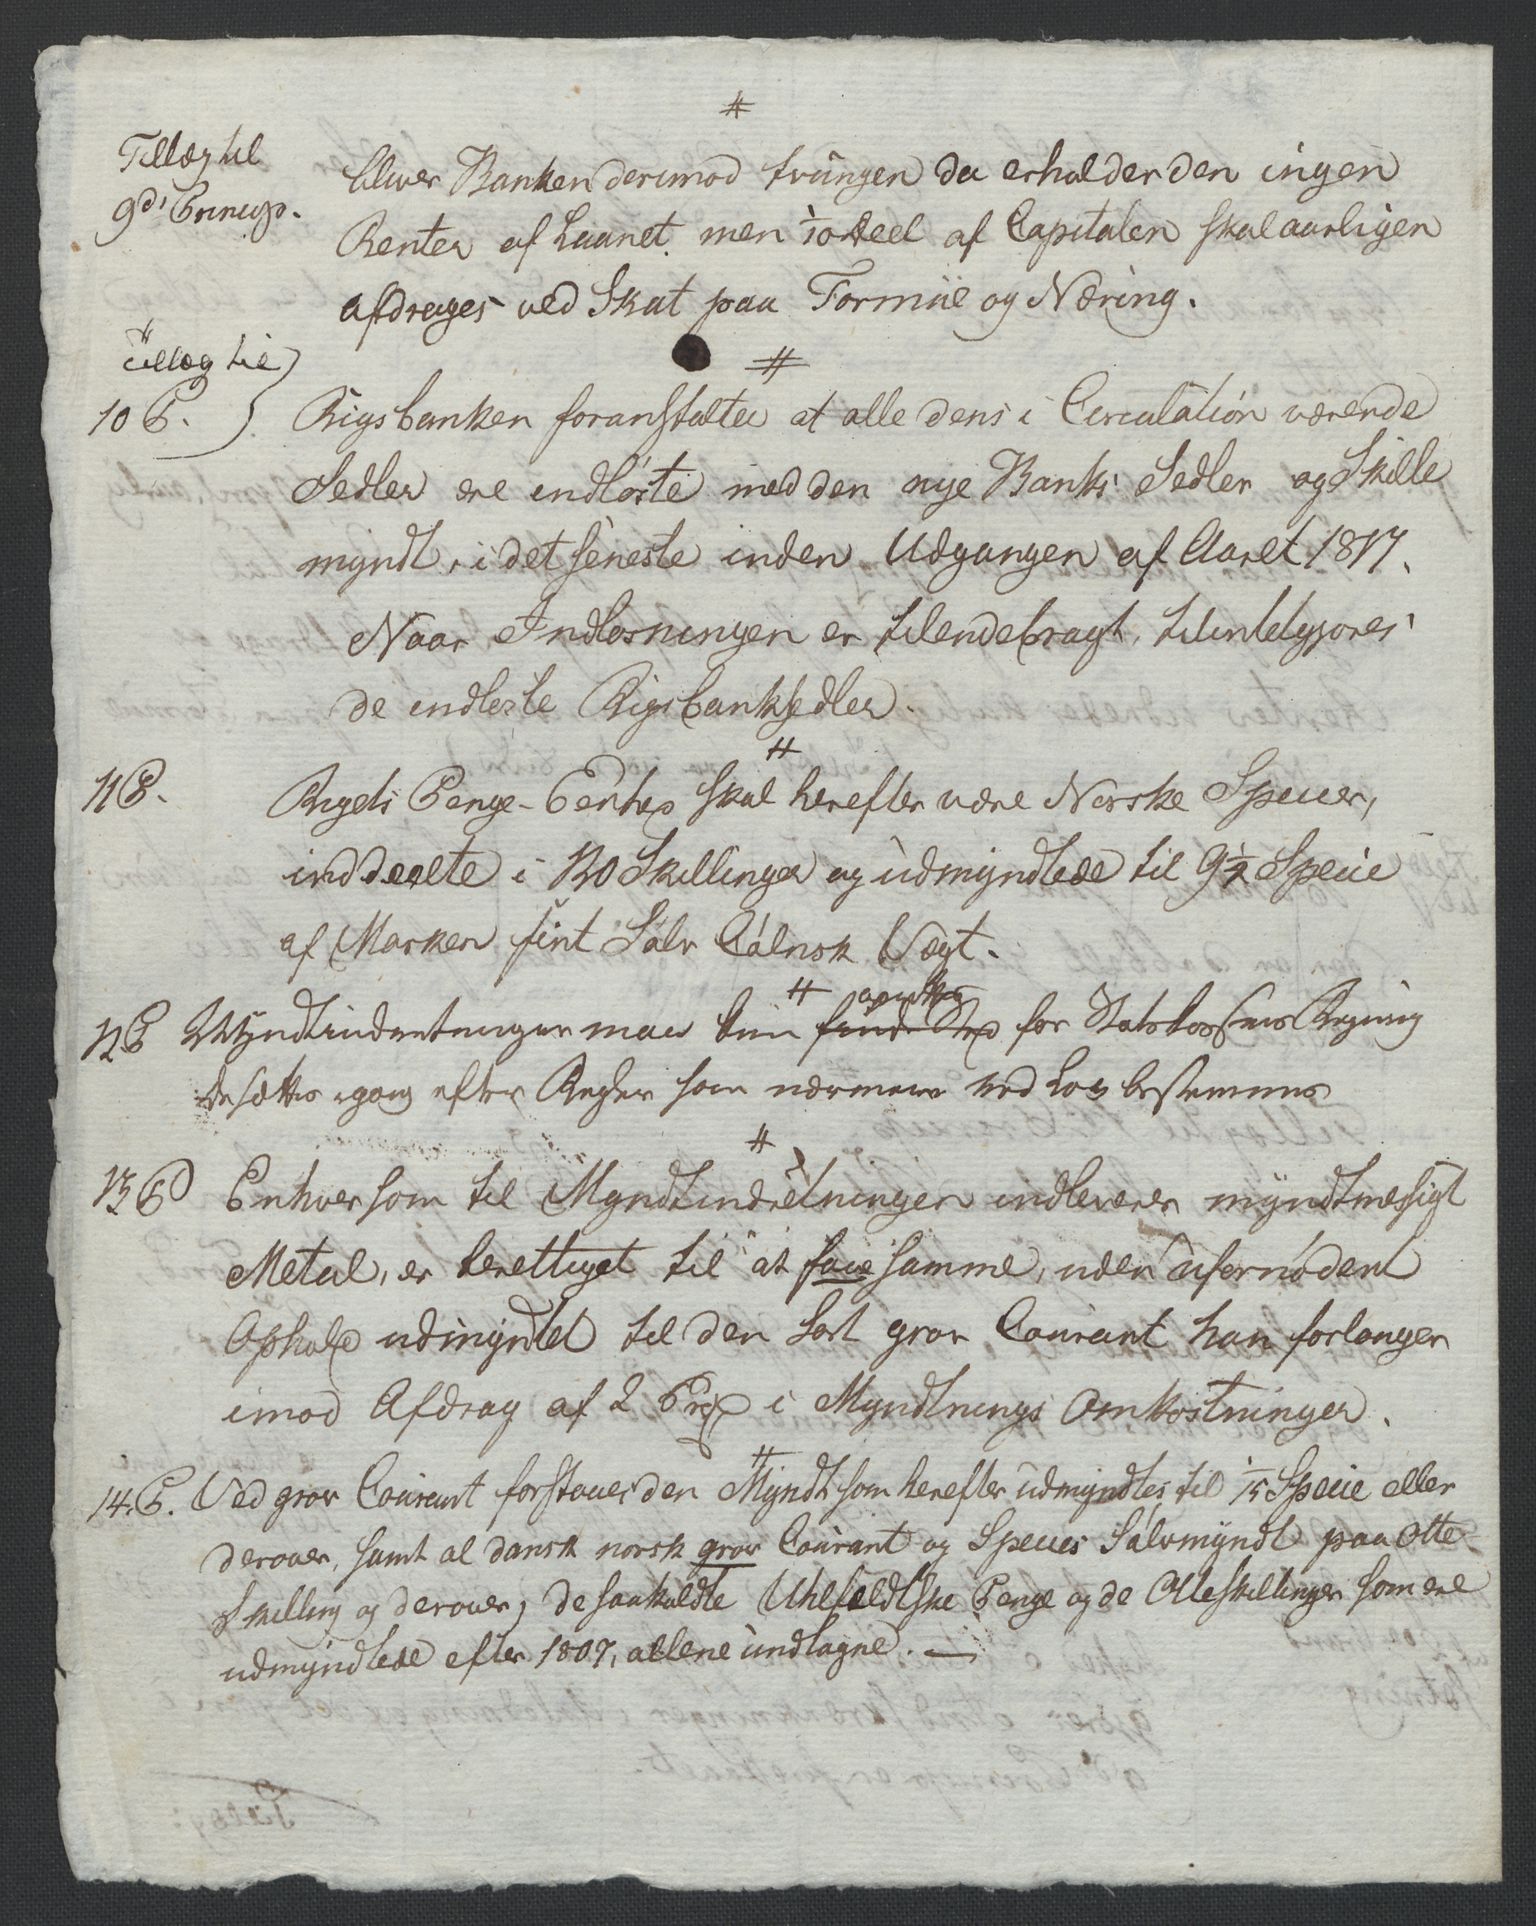 #
Tillæg til
9de Princip.
bliver Banken derimod tvungen da erholder den ingen
Renter af Laanet men 1/10 Deel af Capitalen skal aarligen
afdrages ved Skat paa Formue og Næring.
#
Tillæg til
10 P.
Rigsbanken foranstalter at alle dens i Circulation værende
Sedler ere indløste med den nye Banks Sedler og Skille
myndt, i det seneste inden Udgangen af Aaret 1817.
Naar Indløsningen er tilendebragt, tilintetgjøres
de indløste Rigsbanksedler.
#
11 P.
Rigets Penge-Eenhed skal herefter være Norske Specier,
inddeelte i 120 Skillinger og udmyndtede til 9 1/4 Specie
af Marken fiint Sølv Cølnsk Vægt.
#
12 P
Myndtindretninger maae kun for Statskassens Regning
og sættes igang efter Regler som nærmere ved Lov bestemmes
#
13 P
Enhver som til Myndtindretningen indleverer myndtmæssigt
Metal, er berettiget til at faae samme, uden ufornøden
Ophold udmyndtet til den Sort grov Courant han forlanger
imod Afdrag af 2 Prct i Myndtnings Omkostninger.
#
14. P.
Ved grov Courant forstaaes den Myndt som herefter udmyndtes til 1/15 Specie eller
derover, samt al dansk norsk grov Courant og Species Sølvmyndt paa Otte
Skilling og derover, de saakaldte Uhlfeldtske Penge og de Otteskillinger som ere
udmyndtede efter 1807, allene undtagne. —